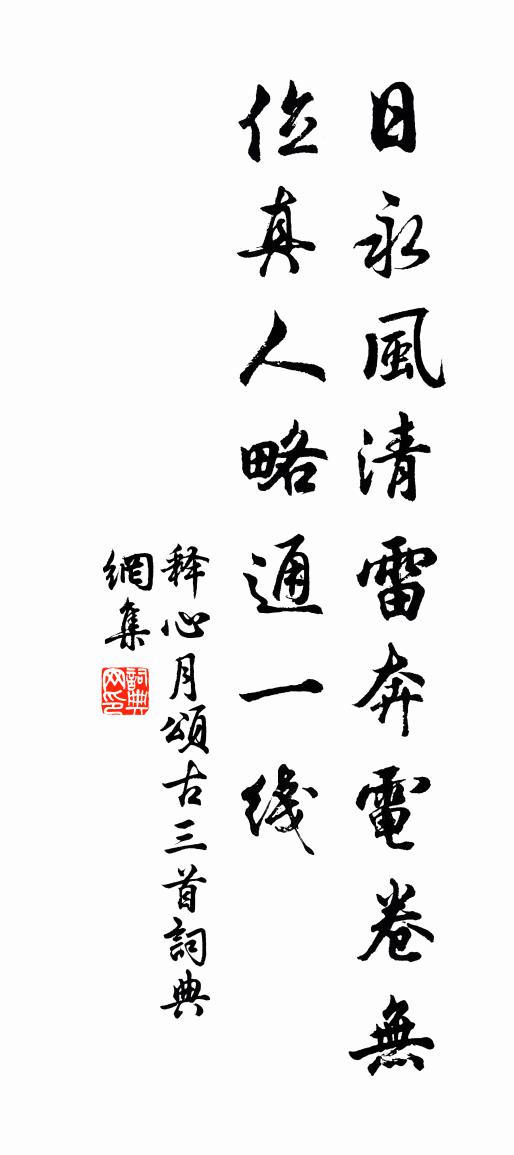 日永風清雷奔電卷無
位真人略通一线
释心月頌古三首詞典
網集
詞典網印